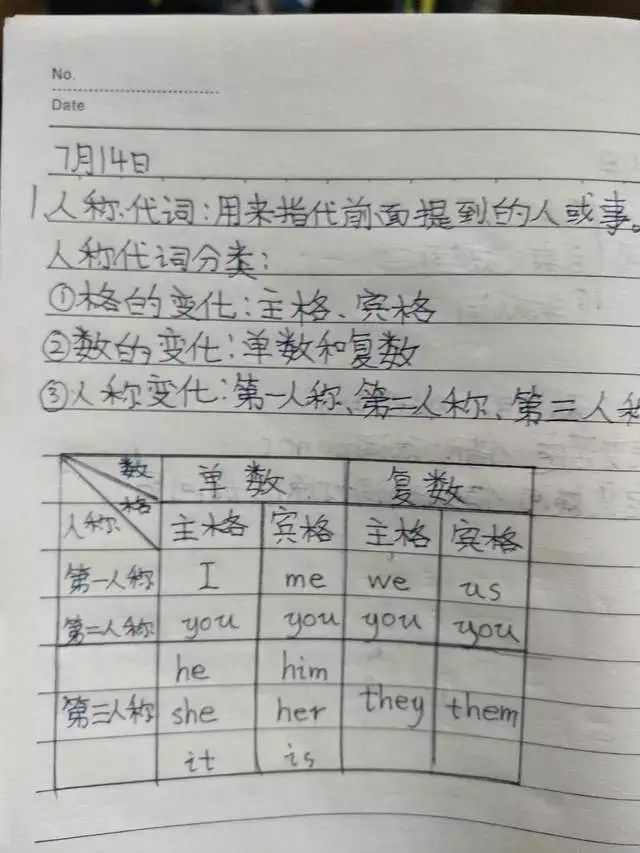 No.
Date
7月14日
1.人称代词:用来指代前面提到的人或事。
人称代词分类:
①格的变化:主格、宾格
②数的变化:单数和复数
③人称变化:第一人称、第二人称、第三人称
数 单数 复数
格
人称 主格 宾格 主格 宾格
第一人称 I me we us
第二人称 you you you you
he him
第三人称 she her they them
it is